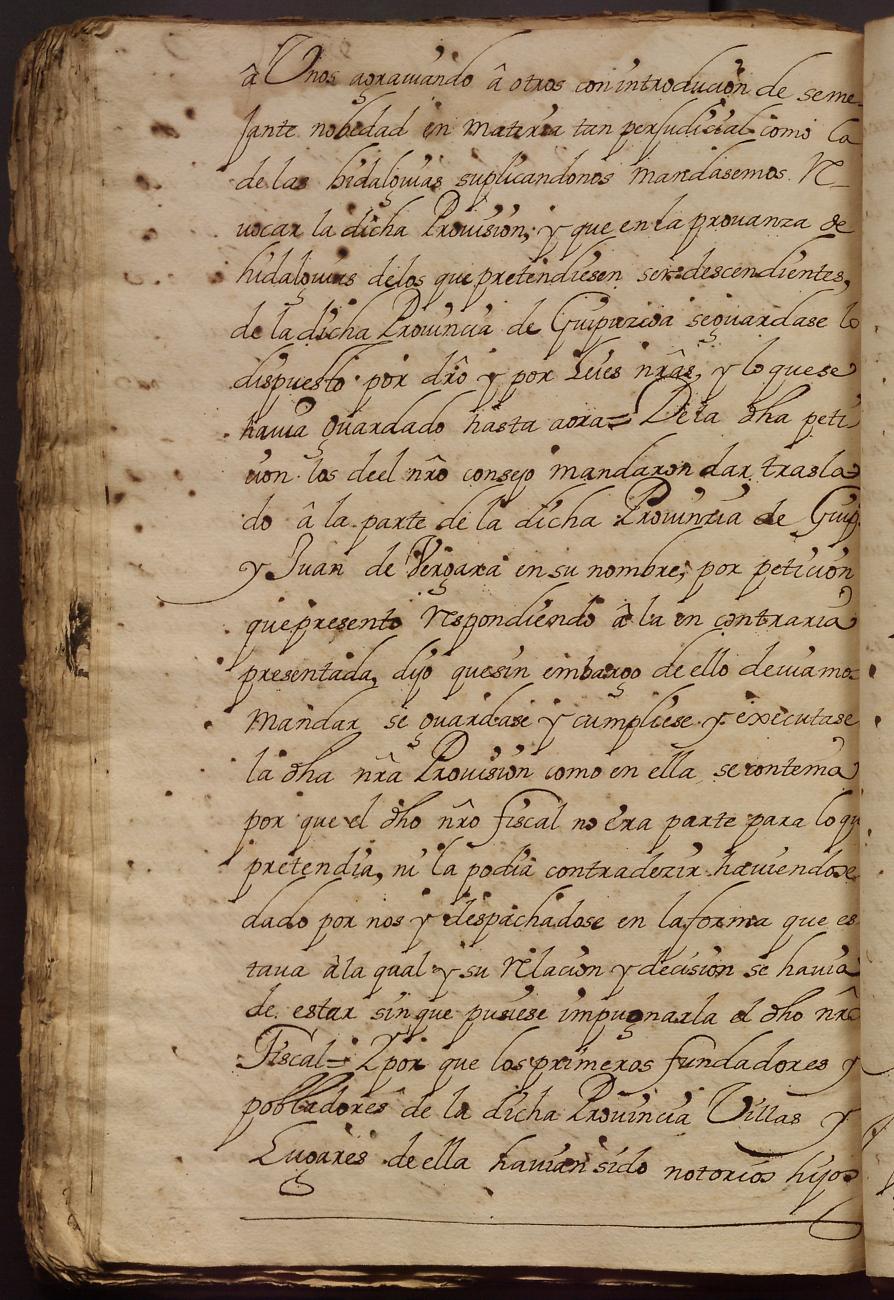 â Unos agraviando â otros con introducion de seme-
jante nobedad en materia tan perjudicial como la
de las hidalguias suplicandonos mandasemos Re-
vocar la dicha Provision; y que en la provanza de
hidalguias delos que pretendiesen ser descendientes,
de la dicha Provincia de Guipuzcoa seguardase lo
dispuesto por dr̃o y por Leies nr̃as, y lo que se
havia guardado hasta aora= Dela dh̃a peti
cion los deel nr̃o consejo mandaron dar trasla
do â la parte de la dicha Provinzia de Guip
y Juan de Vergara en su nombre; por peticion
que presento respondiendo â la en contraria
presentada, dijo que sin embargo de ello deviamos
mandar se guardase y cumpliese y executase
la dh̃a nr̃a Provision como en ella se contenia
por que el dh̃o nr̃o fiscal no era parte para lo qu
pretendia, ni la podia contradezir haviendose
dado por nos y despachadose en la forma que es
tava à la qual y su relacion y decision se havia
de estar sin que pusiese impugnarla el dh̃o nr̃o
Fiscal= Y por que los primeros fundadores y
pobladores de la dicha Provincia Villas y
Lugares de ella havian sido notorios hijos